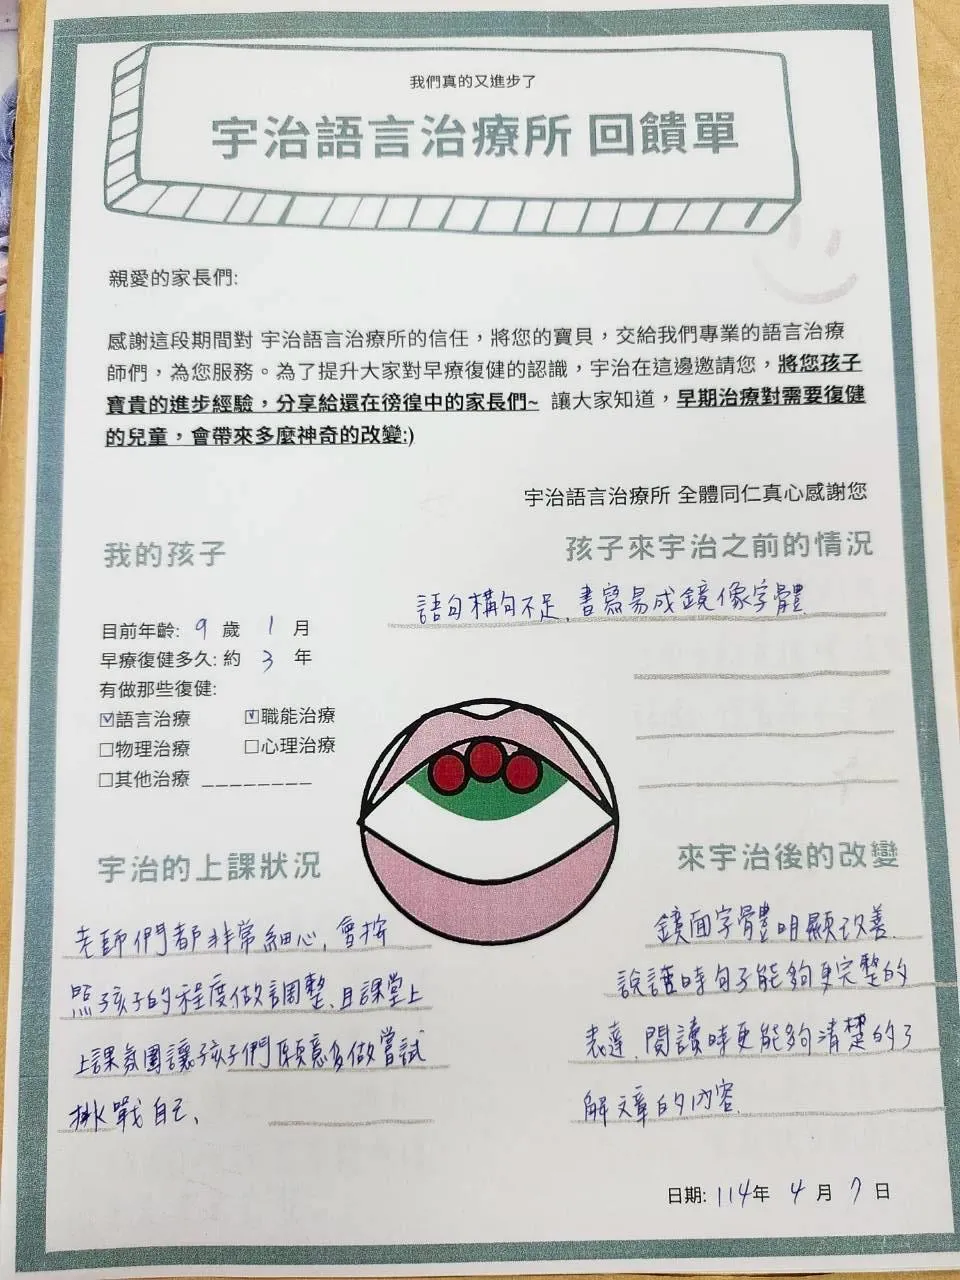 我們真的又進步了
宇治語言治療所 回饋單
親愛的家長們:
感謝這段期間對 宇治語言治療所的信任，將您的寶貝，交給我們專業的語言治療
師們，為您服務。為了提升大家對早療復健的認識，宇治在這邊邀請您，將您孩子
寶貴的進步經驗，分享給還在徬徨中的家長們~ 讓大家知道，早期治療對需要復健
的兒童，會帶來多麼神奇的改變:)
宇治語言治療所 全體同仁真心感謝您
我的孩子
目前年齡: 9 歲 1 月
早療復健多久: 約 3 年
有做那些復健:
☑語言治療 ☑職能治療
☐物理治療 ☐心理治療
☐其他治療 ________
孩子來宇治之前的情況
語句構句不足、書寫易成鏡像字體
宇治的上課狀況
老師們都非常細心、會按
照孩子的程度做調整、且課堂上
上課氛圍讓孩子們願意多做嘗試
挑戰自己、
來宇治後的改變
鏡面字體明顯改善、
說話時句子能夠更完整的
表達、閱讀時更能夠清楚的了
解文章的內容、
日期: 114年 4 月 7 日